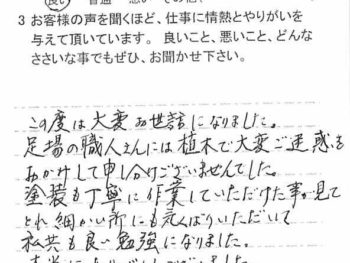 良い
3 お客様の声を聞くほど、仕事に情熱とやりがいを
与えて頂いています。 良いこと、悪いこと、どんな
ささいな事でもぜひ、お聞かせ下さい。
この度は大変お世話になりました。
足場の職人さんには植木で大変ご迷惑を
おかけして申し分けございませんでした。
塗装も丁寧に作業していただけた事が見て
とれ細かい所にも気くばりいただいて
私共も良い勉強になりました。